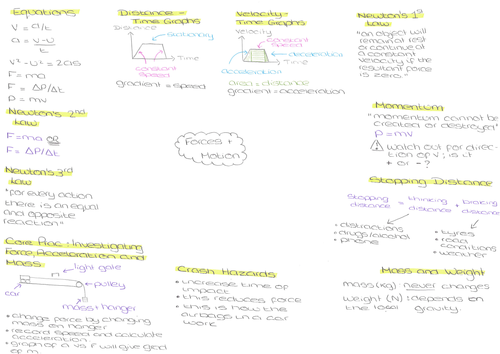 Equations
V = d/t
a = V-U
t
V² - U² = 2as
F = ma
F = ΔP/Δt
P = mv
Newton's 2nd
Law
F = ma OR
F = ΔP/Δt
Newton's 3rd
Law
"for every action
there is an equal
and opposite
reaction"
Core Prac: Investigating
Force, Acceleration and
Mass
light gate
car
pulley
mass + hanger
• change force by changing
mass on hanger
• record speed and calculate
acceleration
• graph of a vs F will give grad
of m
Distance -
Time Graphs
Distance
stationary
Time
constant
speed
gradient = speed
Velocity -
Time Graphs
Velocity
constant
speed
deceleration
Time
acceleration
area = distance
gradient = acceleration
Forces +
Motion
Crash Hazards
• increase time of
impact
• this reduces force
• this is how the
airbags in a car
work
Newton's 1st
Law
"an object will
remain at rest
or continue at
a constant
velocity if the
resultant force
is zero"
Momentum
"momentum cannot be
created or destroyed"
P = mv
! watch out for direc-
tion of V; is it
+ or - ?
Stopping Distance
stopping distance = thinking distance + braking distance
• distractions
• drugs/alcohol
• phone
• tyres
• road
conditions
• weather
Mass and Weight
mass (kg) never changes
weight (N): depends on
the local gravity